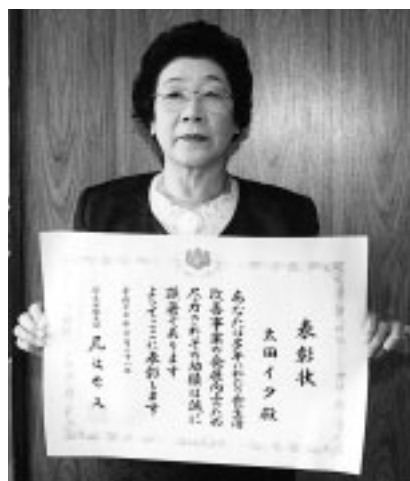 表彰状
太田イタ殿
あなたは多年にわたり食生活
改善事業の発展向上のため
尽力されその功績は誠に
顕著であります
よってここに表彰します